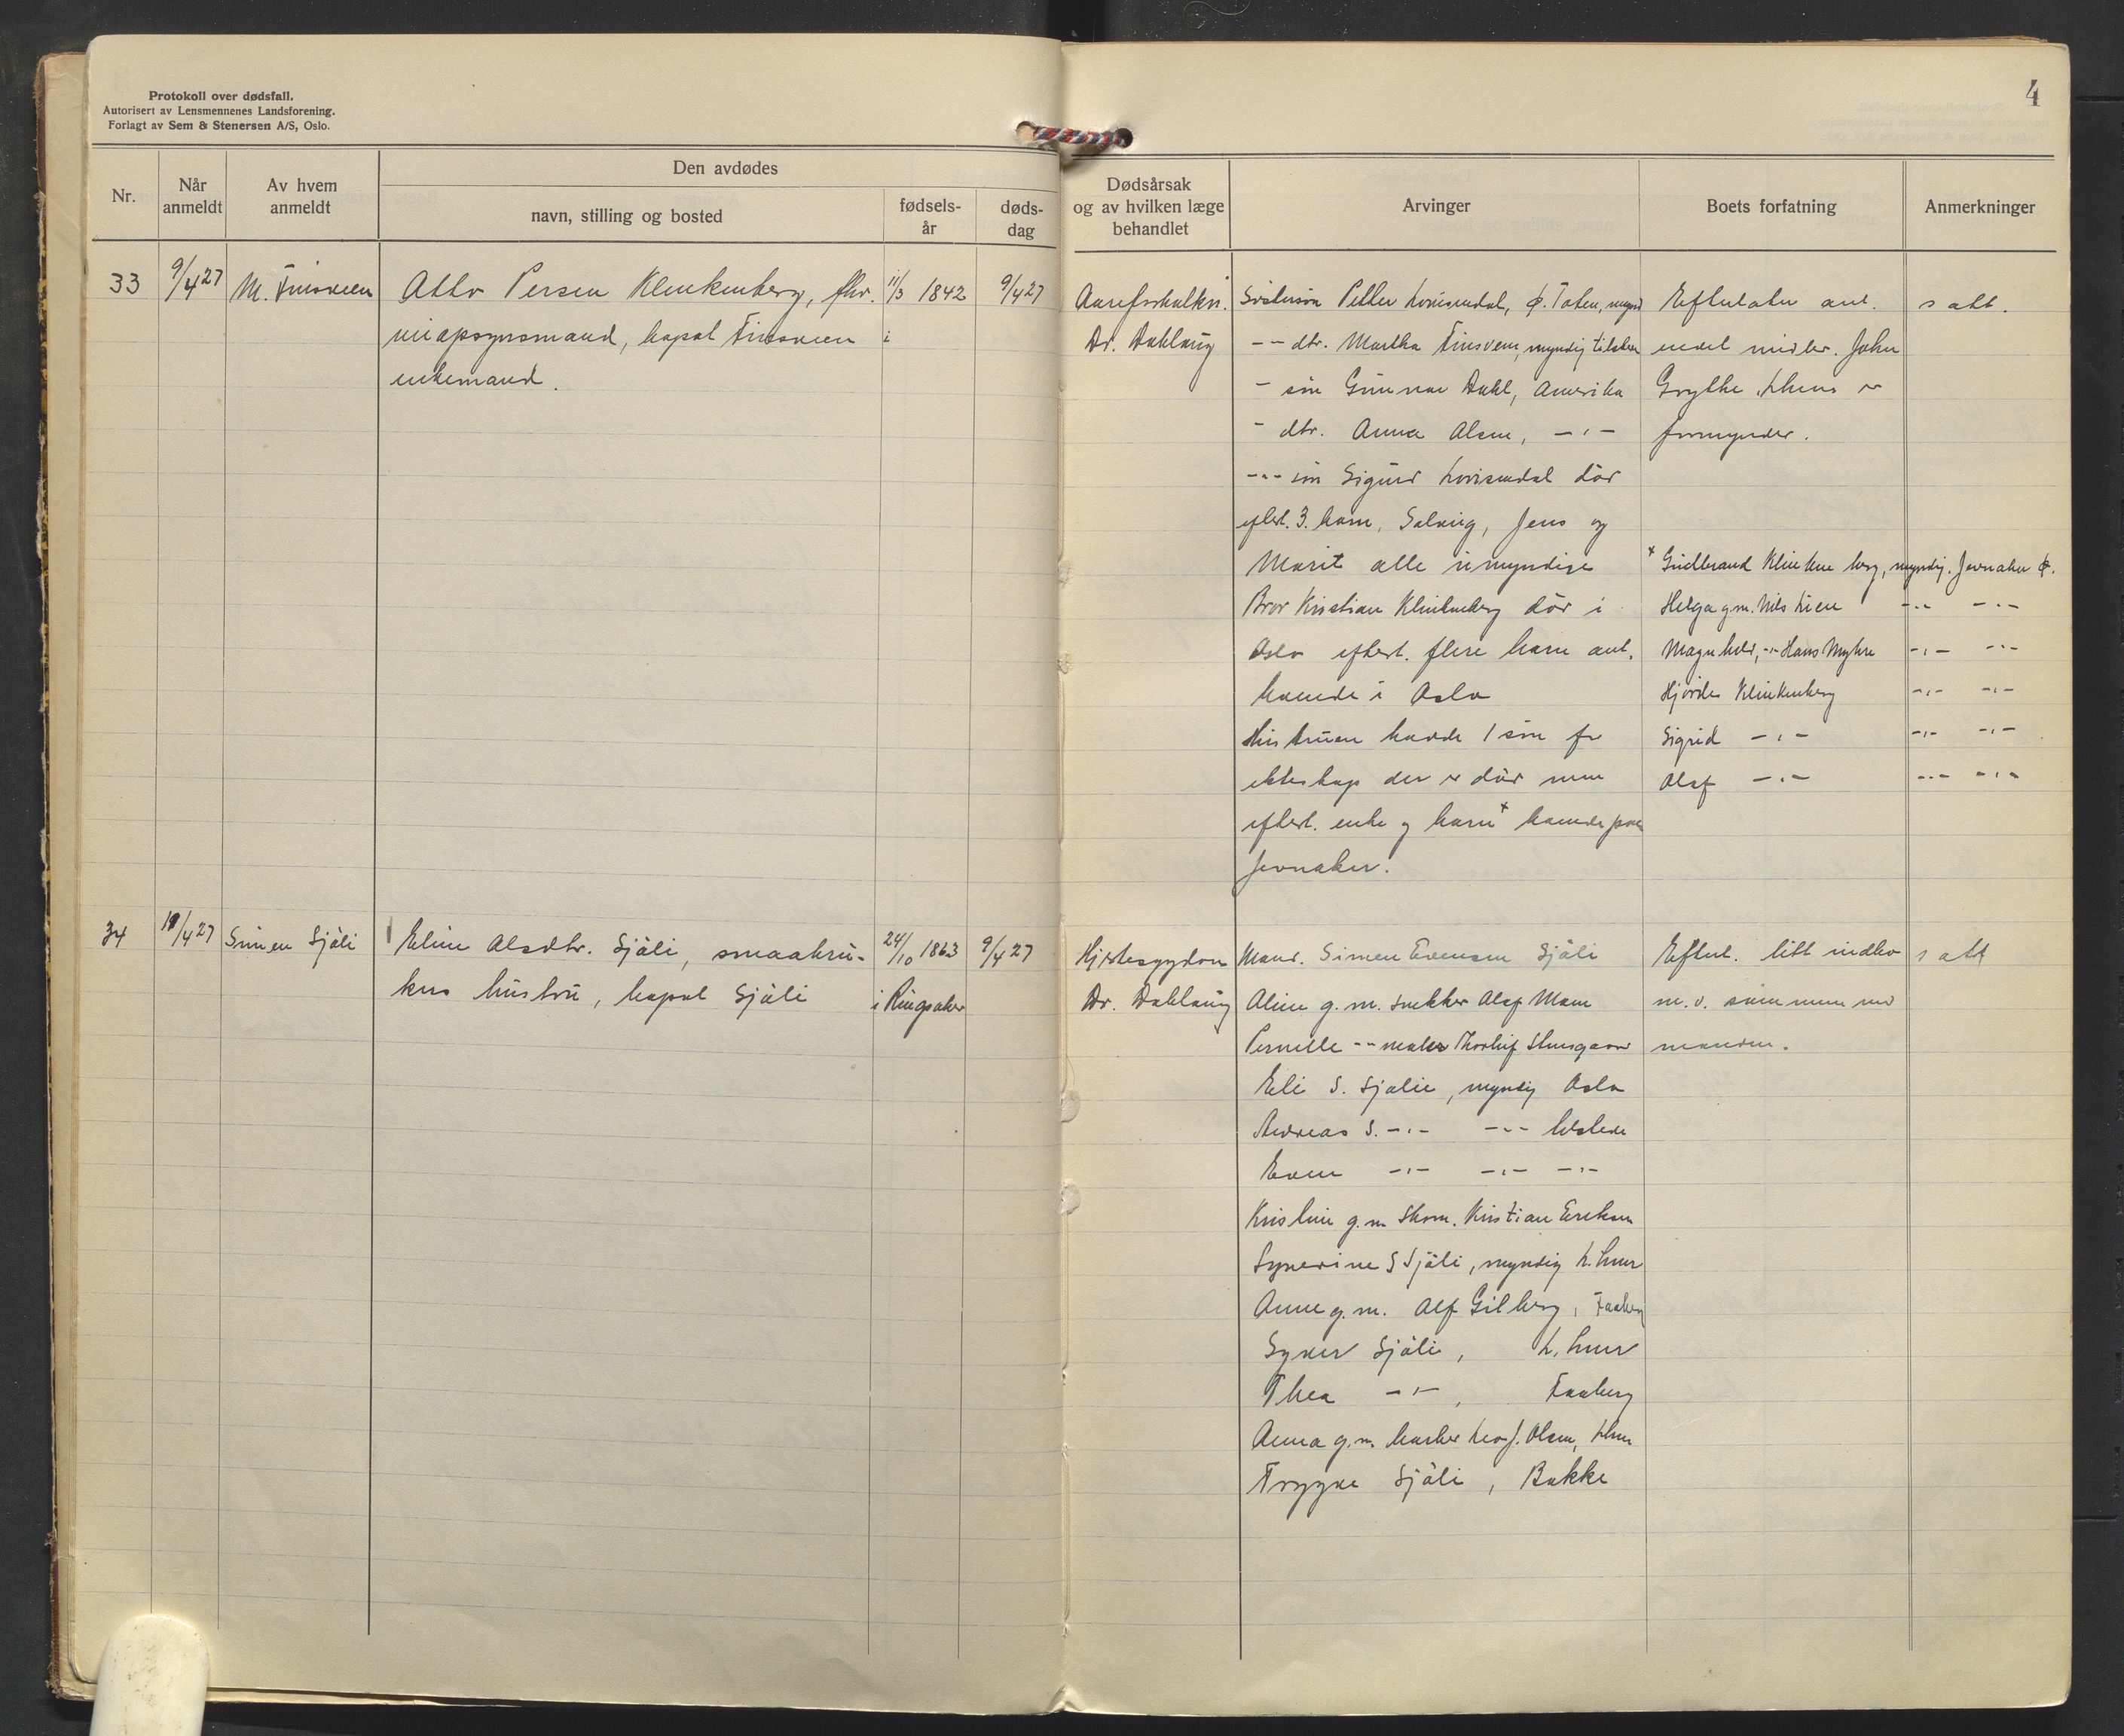 Protokoll over dødsfall.
Autorisert av Lensmennenes Landsforening.
Forlagt av Sem & Stenersen A/S, Oslo.
4
Nr.
Når anmeldt
Av hvem anmeldt
Den avdødes
navn, stilling og bosted
fødsels-
år
døds-
dag
Dødsårsak
og av hvilken læge
behandlet
Arvinger
Boets forfatning
Anmerkninger
33 9/4 27 M. Finsveen
Otto Persen Klinkenberg, fhv. 11/3 1842 9/4 27
opsynsmand, bopæl Finsveen i
enkemand.
Aareforkalkn.
Dr. Dahlaug
Søstersøn Petter Lovisendal, Ø. Toten, mynd
-"- dtr. Martha Finsveen, myndig tilstede
- søn Gunnar Dahl, Amerika
- dtr. Anna Olsen, -"-
-"- søn Sigurd Lovisendal død
efterl. 3. barn, Solveig, Jens og
Marit alle umyndige
Bror Kristian Klinkenberg død i
Oslo efterl. flere barn ant.
boende i Oslo
Hustruen hadde 1 søn før
ekteskap der er død men
efterl. enke og barn x boende paa
Jevnaker.
Efterlater ant.
endel midler. John
Grytte, Lhmr er
formynder.
s att.
x Gudbrand Klinkenberg, myndig. Jevnaker Ø.
Helga g.m. Nils Lien -"- -"-
Magnhild, -"- Hans Myhre -"- -"-
Hjørdis Klinkenberg -"- -"-
Sigrid -"- -"- -"-
Olaf -"- -"- -"-
34 19/4 27 Simen Sjöli
Eline Olsdtr. Sjöli, smaabru-
kers hustru, bopæl Sjöli
24/10 1863 9/4 27
i Ringsaker
Hjertesygdom
Dr. Dahlaug
Mand. Simen Evensen Sjöli
Oline g.m. snekker Olaf Moen
Pernille -"- maler Thorleif Stensgaard
Eli S. Sjølie, myndig Oslo
Andreas S. -"- -"- tilstede
Even -"- -"- -"-
Kristine g.m. Skom. Kristian Eriksen
Syverine S Sjöli, myndig L.hmr
Anne g.m. Alf Gilberg, Faaberg
Syver Sjöli, L.hmr
Thea -"-, Faaberg
Anna g.m. barber Leo J. Olsen, Lhmr
Trygve Sjöli, Bakke
Efterl. litt indbo
m.v. sammen med
manden.
s att